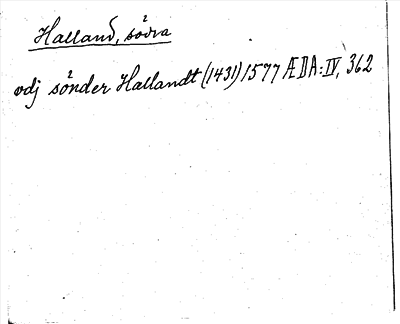 Halland, södra
vdj sönder Hallandt (1431) 1577 ÆDA: IV, 362